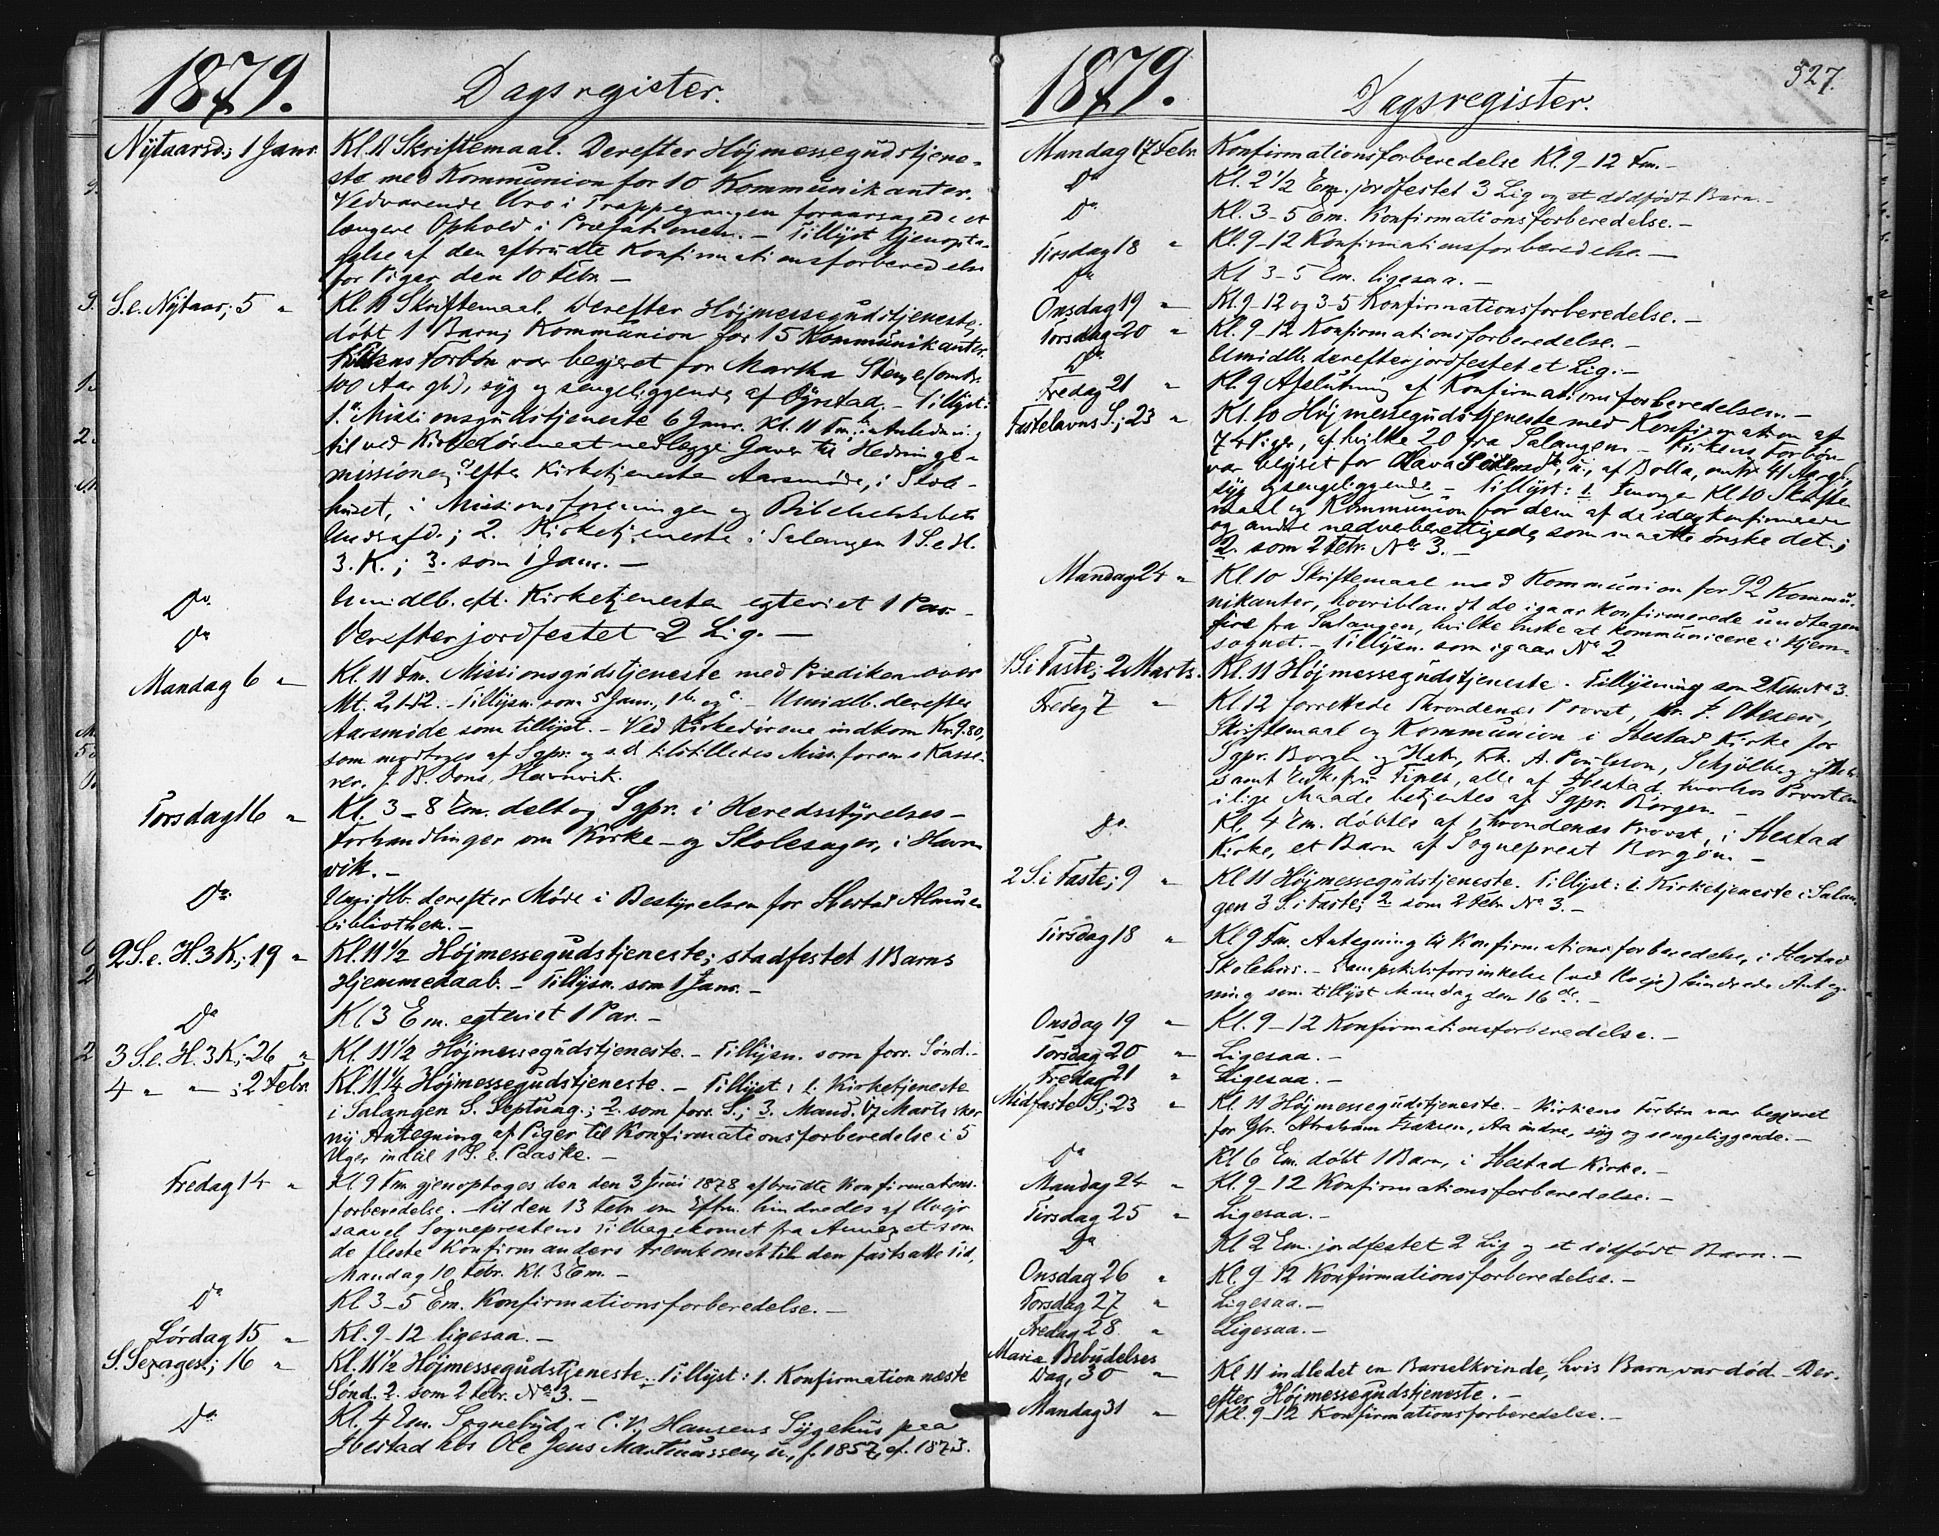 1879.
Dagsregister.
Nytaarsd; 1 Janr. Kl. 11 Skriftemaal. Derefter Højmessegudstjene-
ste med Kommunion for 10 Kommunikanter.
Vedvarende Uro i Trappegangen foraarsagede et
længere Ophold i Præfationen. – Tillyst Gjenopta-
gelse af den afbrudte Konfirmationsforberedelse
for Piger den 10 Febr. –
S. e. Nytaar; 5 " Kl. 11 Skriftemaal. Derefter Højmessegudstjeneste;
døbt 1 Barn; Kommunion for 15 Kommunikanter.
Kirkens Forbøn var begjæret for Martha (omtr.
100 Aar gl), syg og sengeliggende, af – Tillyst:
1. Missionsgudstjeneste 6 Janr. Kl. 11 Fm., Anledning
til ved Kirkedørene at nedlægge Gaver til Hedninge-
missionen; efter Kirketjenesten Aarsmøde, i Skole-
huset, i Missionsforeningen og Bibelselskabets
Underafd.; 2. Kirketjeneste i Salangen 1 S. e. H.
3. K.; 3. som 1 Janr. –
Do Umidlb. eft. Kirketjenesten egteviet 1 Par. –
Do Derefter jordfestet 2 Lig. –
Mandag 6 " Kl. 11 Fm. Missionsgudstjeneste med Prædiken over
Mt. 2, 1-12. – Tillysn. som 5 Janr., 1 b og c – Umidlb. derefter
Aarsmøde som tillyst. – Ved Kirkedørene indkom Kr. 9.80,
som modtoges af Sgpr. og s. d. tilstilledes Miss.foren.s Kasse-
rer, J. B. Dons, Havnvik.
Torsdag 16 " Kl. 3–8 Em. deltog Sgpr. i Heredsstyrelses-
Forhandlinger om Kirke- og Skolesager, i Havn
vik. –
Do Umidlb. derefter Møde i Bestyrelsen for Ibestad Almue
bibliothek. –
2 S. e. H. 3 K; 19 " Kl. 11 1/2 Højmessegudstjeneste; stadfestet 1 Barns
Hjemmedaab. – Tillysn. som 1 Janr. –
Do Kl 3 Em. egteviet 1 Par. –
3 S. e. H. 3 K; 26 " Kl. 11 1/2 Højmessegudstjeneste. – Tillysn. som forr. Sønd. –
4 " " ; 2 Febr. Kl. 11 1/4 Højmessegudstjeneste. – Tillyst: 1. Kirketjeneste
i Salangen S. Septuag.; 2. som forr. S.; 3. Mand. 17 Marts sker
ny Antegning af Piger til Konfirmationsforberedelse i 5
Uger indtil 1 S. e. Paaske. –
Fredag 14 " Kl 9 Fm gjenoptoges den den 3 Juni 1878 afbrudte Konfirmations-
forberedelse. – Til den 13 Febr. om Eftm. hindredes af Uvejr
saavel Sognepræstens Tilbagekomst fra Annexet som
de fleste Konfirmanders Fremkomst til den fastsatte Tid,
Mandag 10 Febr. Kl. 3 Em. –
Do Kl 3–5 Em. Konfirmationsforberedelse. –
Lørdag 15 " Kl. 9–12 ligesaa. –
S. Sexages.; 16 " Kl. 11 1/2 Højmessegudstjeneste. Tillyst: 1. Konfirmation næste
Sønd. 2. som 2 Febr. No 3. –
Do Kl. 4 Em. Sognebud i C. V. Hansens Sygehus paa
Ibestad hos Ole Jens Martinussen, u., f. 1857, cf. 1873.
1879.
Dagsregister.
327.
Mandag 17 Febr. Konfirmationsforberedelse Kl. 9–12 Fm. –
Do Kl. 2 1/2 Em. jordfestet 3 Lig og et dødfødt Barn. –
Do Kl. 3–5 Em. Konfirmationsforberedelse. –
Tirsdag 18 " Kl. 9–12 Konfirmationsforberedelse. –
Do Kl 3–5 Em. ligesaa. –
Onsdag 19 " Kl. 9–12 og 3–5 Konfirmationsforberedelse. –
Torsdag 20 " Kl. 9–12 Konfirmationsforberedelse. –
Do Umidlb. derefter jordfestet et Lig. –
Fredag 21 " Kl. 9 Afslutning af Konfirmationsforberedelsen. –
Fastelavns S; 23 " Kl. 10 Højmessegudstjeneste med Konfirmation af
74 Piger, af hvilke 20 fra Salangen. – Kirkens Forbøn
var begjæret for Olava u., af Bolla, omtr. 41 Aar gl.,
syg og sengeliggende. – Tillyst: 1. Imorgen Kl. 10 Skrifte
maal og Kommunion for dem af de idag konfirmerede
og andre nadverberettigede, som maatte ønske det;
2. som 2 Febr. No 3. –
Mandag 24 " Kl. 10 Skriftemaal med Kommunion for 92 Kommu-
nikanter, hvoriblandt de igaar konfirmerede undtagen
fire fra Salangen, hvilke ønske at kommunicere i Hjem-
sognet. – Tillysn. som igaar No 2
1 S. i Faste; 2 Marts. Kl. 11 Højmessegudstjeneste. Tillysning som 2 Febr. No 3.
Fredag 7 " Kl 12 forrettede Throndenæs Provst, Hr. J.
Skriftemaal og Kommunion i Ibestad Kirke for
Sgpr. Borgen og Hstr., Frk. A. Poulsson,
samt Enkefru alle af Ibestad, hvorhos Provsten
i lige Maade betjentes af Sgpr. Borgen. –
Do Kl. 4 Em. døbtes af Throndenæs Provst, i Ibestad
Kirke, et Barn af Sognepræst Borgen. –
2 S. i Faste; 9 " Kl 11 Højmessegudstjeneste. Tillyst: 1. Kirketjeneste i Salan-
gen 3 S. i Faste; 2. som 2 Febr. No 3. –
Tirsdag 18 " Kl 9 Fm. Antegning til Konfirmationsforberedelse, i Ibestad
Skolehus. – Dampskibsforsinkelse (ved Uvejr) hindrede Anteg-
ning som tillyst Mandag den 16de. –
Onsdag 19 " Kl. 9–12 Konfirmationsforberedelse. –
Torsdag 20 " Ligesaa. –
Fredag 21 " Ligesaa. –
Midfaste S; 23 " Kl. 11 Højmessegudstjeneste. – Kirkens Forbøn var begjæret
for Gbr. Abraham Isaksen, Aa indre, syg og sengeliggende. –
Do Kl 6 Em. døbt 1 Barn, i Ibestad Kirke. –
Mandag 24 " Kl. 9–12 Konfirmationsforberedelse. –
Tirsdag 25 " Ligesaa. –
Do Kl 2 Em. jordfestet 2 Lig og et dødfødt Barn. –
Onsdag 26 " Kl. 9–12 Konfirmationsforberedelse. –
Torsdag 27 " Ligesaa. –
Fredag 28 " Ligesaa. –
Maria Bebudelses
Dag; 30 " Kl 11 indledet en Barselkvinde, hvis Barn var død. – Der-
efter Højmessegudstjeneste. –
Mandag 31 " Kl. 9–12 Konfirmationsforberedelse. –